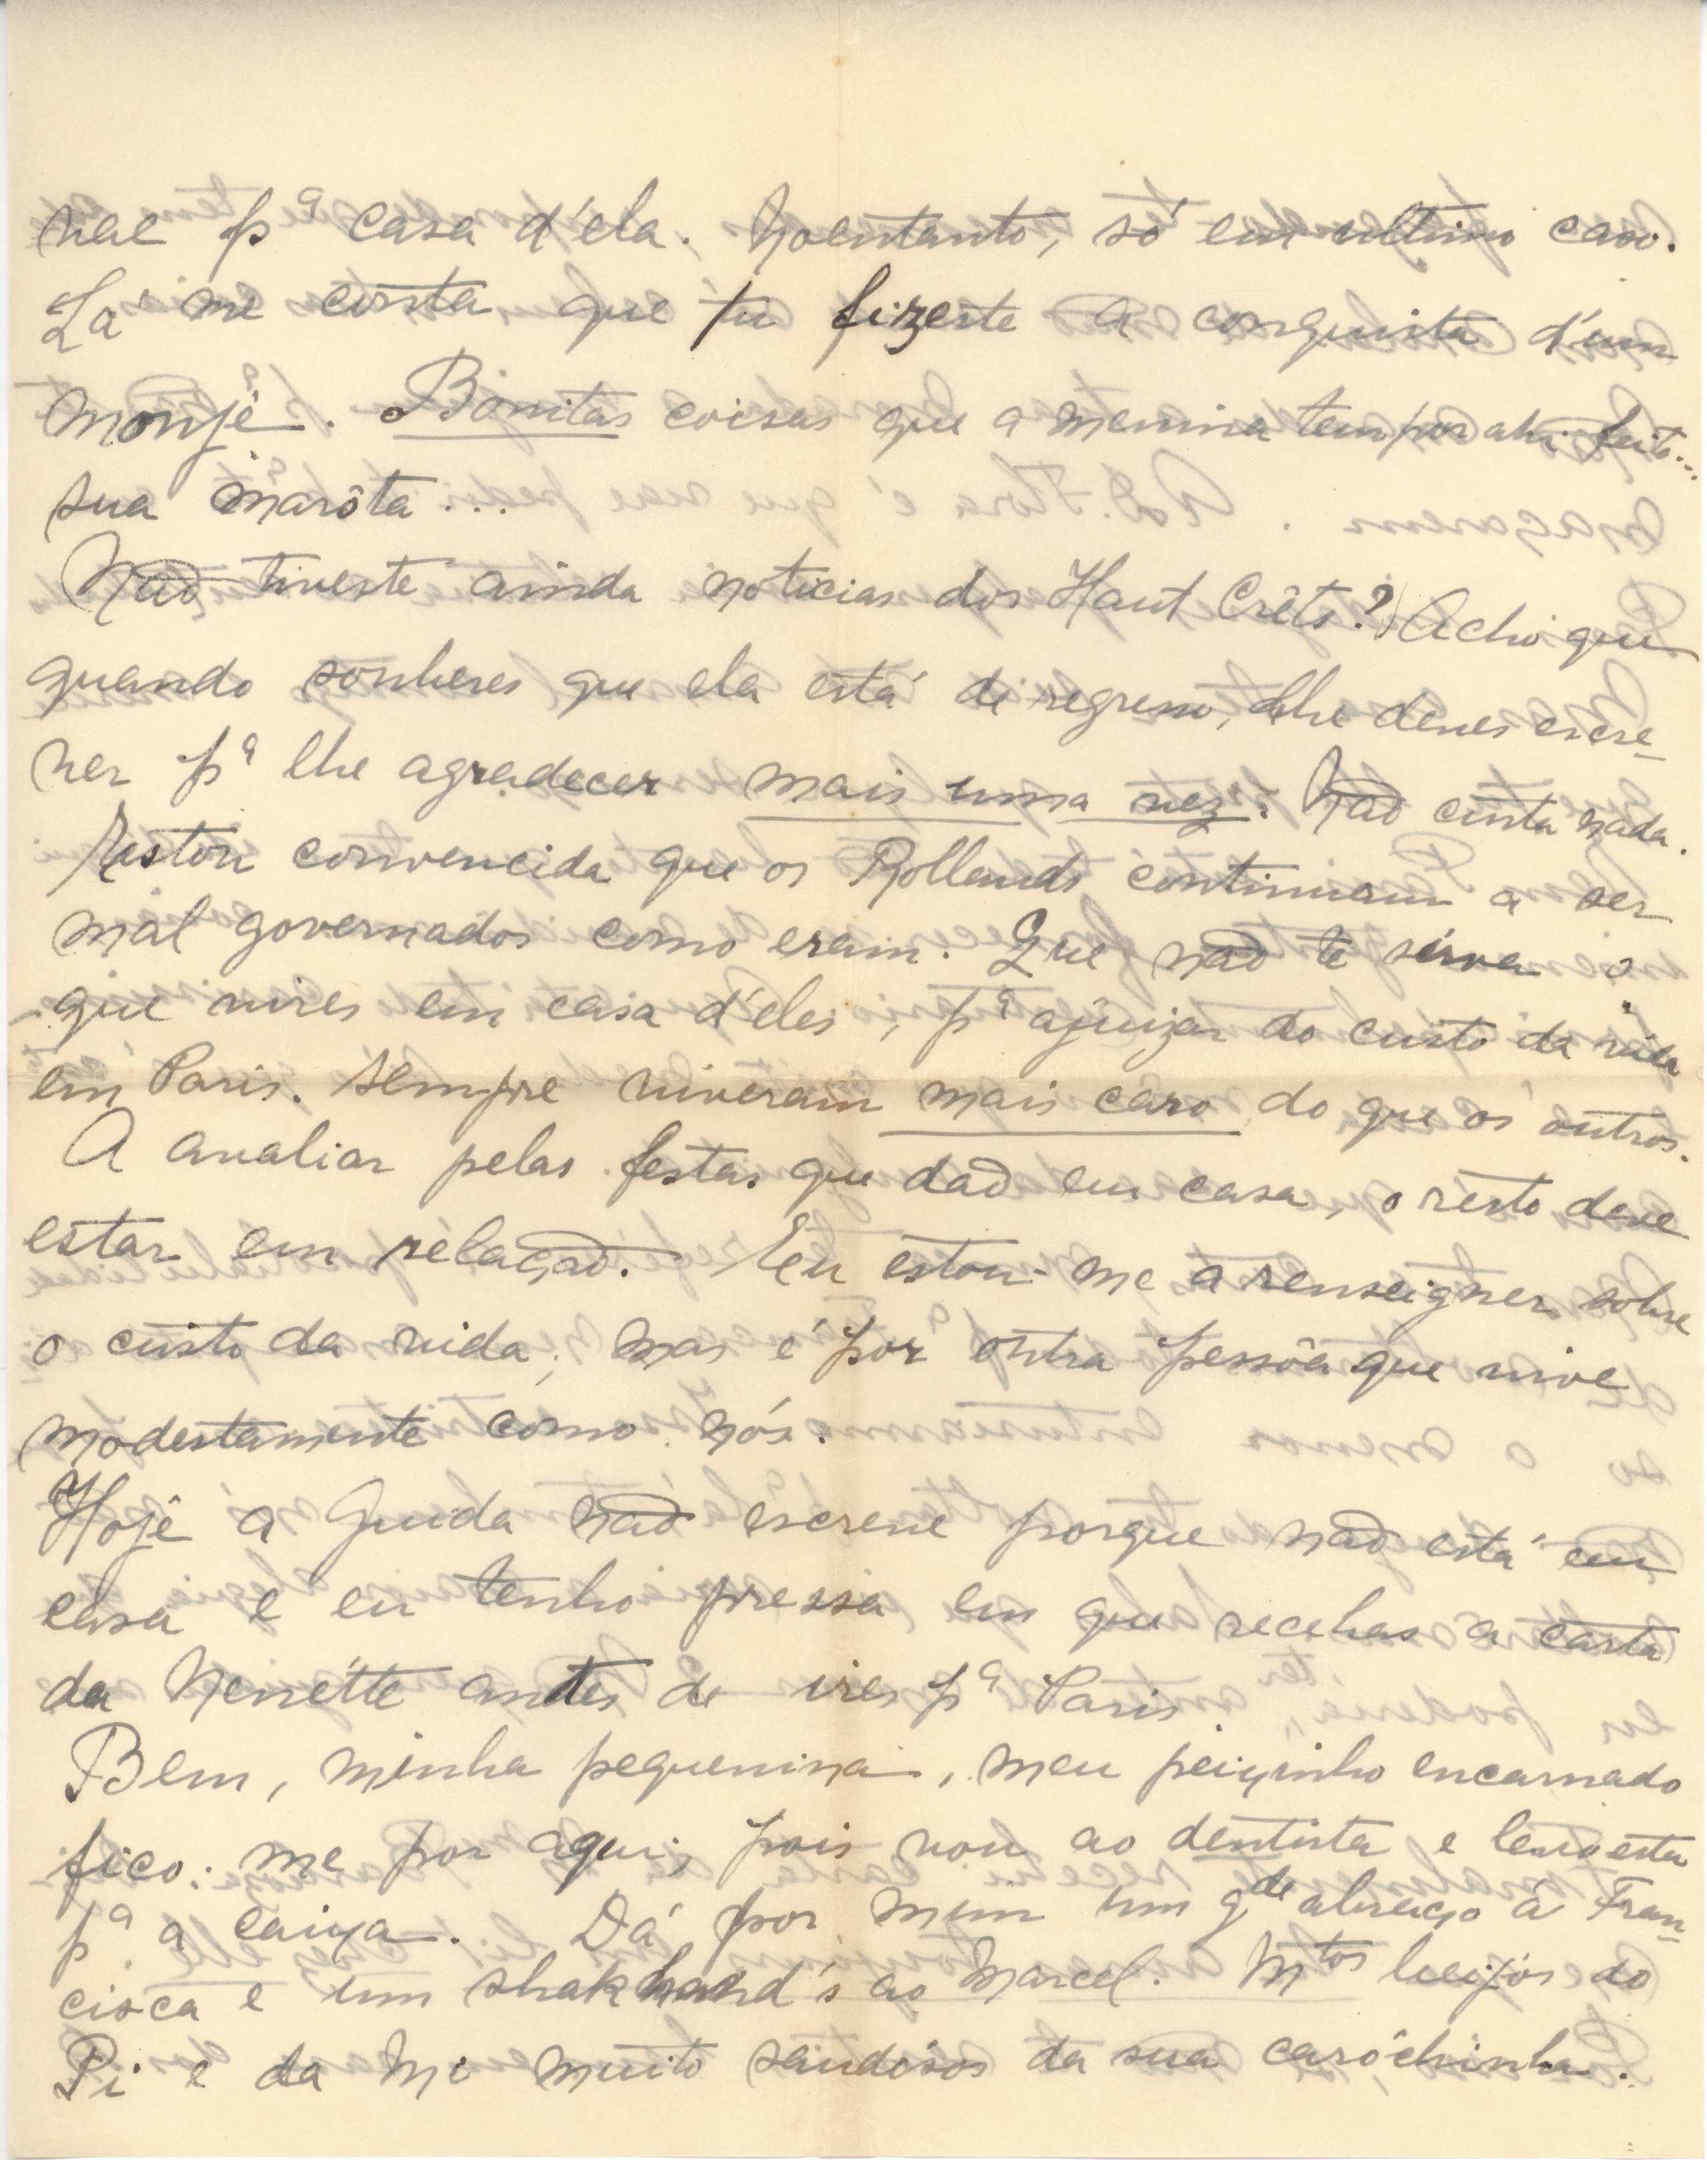 vae pª casa d'ela. Noentanto, só em ultimo caso.
Lá me consta que tu fizeste a conquista d'um
monje. Bonitas coisas que a menina tem por ahi feito...
sua maróta...
Não tiveste ainda noticias dos Haut Crêts? Acho que
quando souberes que ela está de regresso, lhe deves escre-
ver pª lhe agradecer mais uma vez. Não custa nada.
Estou convencida que os Rollands continuam a ser
mal governados como eram. Que não te sirva o
que vires em casa d'eles, pª ajuizar do custo da vida
em Paris. Sempre viveram mais caro do que os outros.
A avaliar pelas festas que dão em casa, o resto deve
estar em relação. Eu estou-me a renseigner sobre
o custo da vida, mas é por outra pessôa que vive
modestamente como nós.
Hoje a Guida não escreve porque não está em
casa e eu tenho pressa em que recebas a carta
da Nenétte antes de ires pª Paris.
Bem, minha pequenina, meu peixinho encarnado
fico-me por aqui, pois vou ao dentista e levo esta
pª a caixa. Dá por mim um gde abraço á Fran-
cisca e um shakhand's ao Marcel. Mtos beijos do
Pi e da Mi muito saudósos da sua caróchinha.